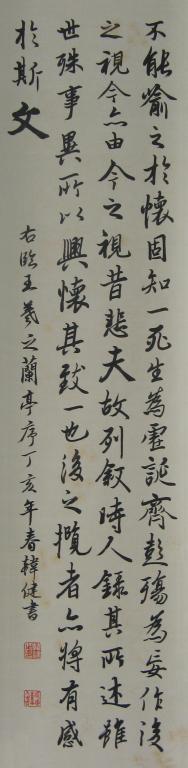 不能喻之於懷固知一死生為虛誕齊彭殤為妄作後
之視今亦由今之視昔悲夫故列敘時人錄其所述雖
世殊事異所以興懷其致一也後之攬者亦將有感
於斯文
右臨王羲之蘭亭序丁亥年春韓健書